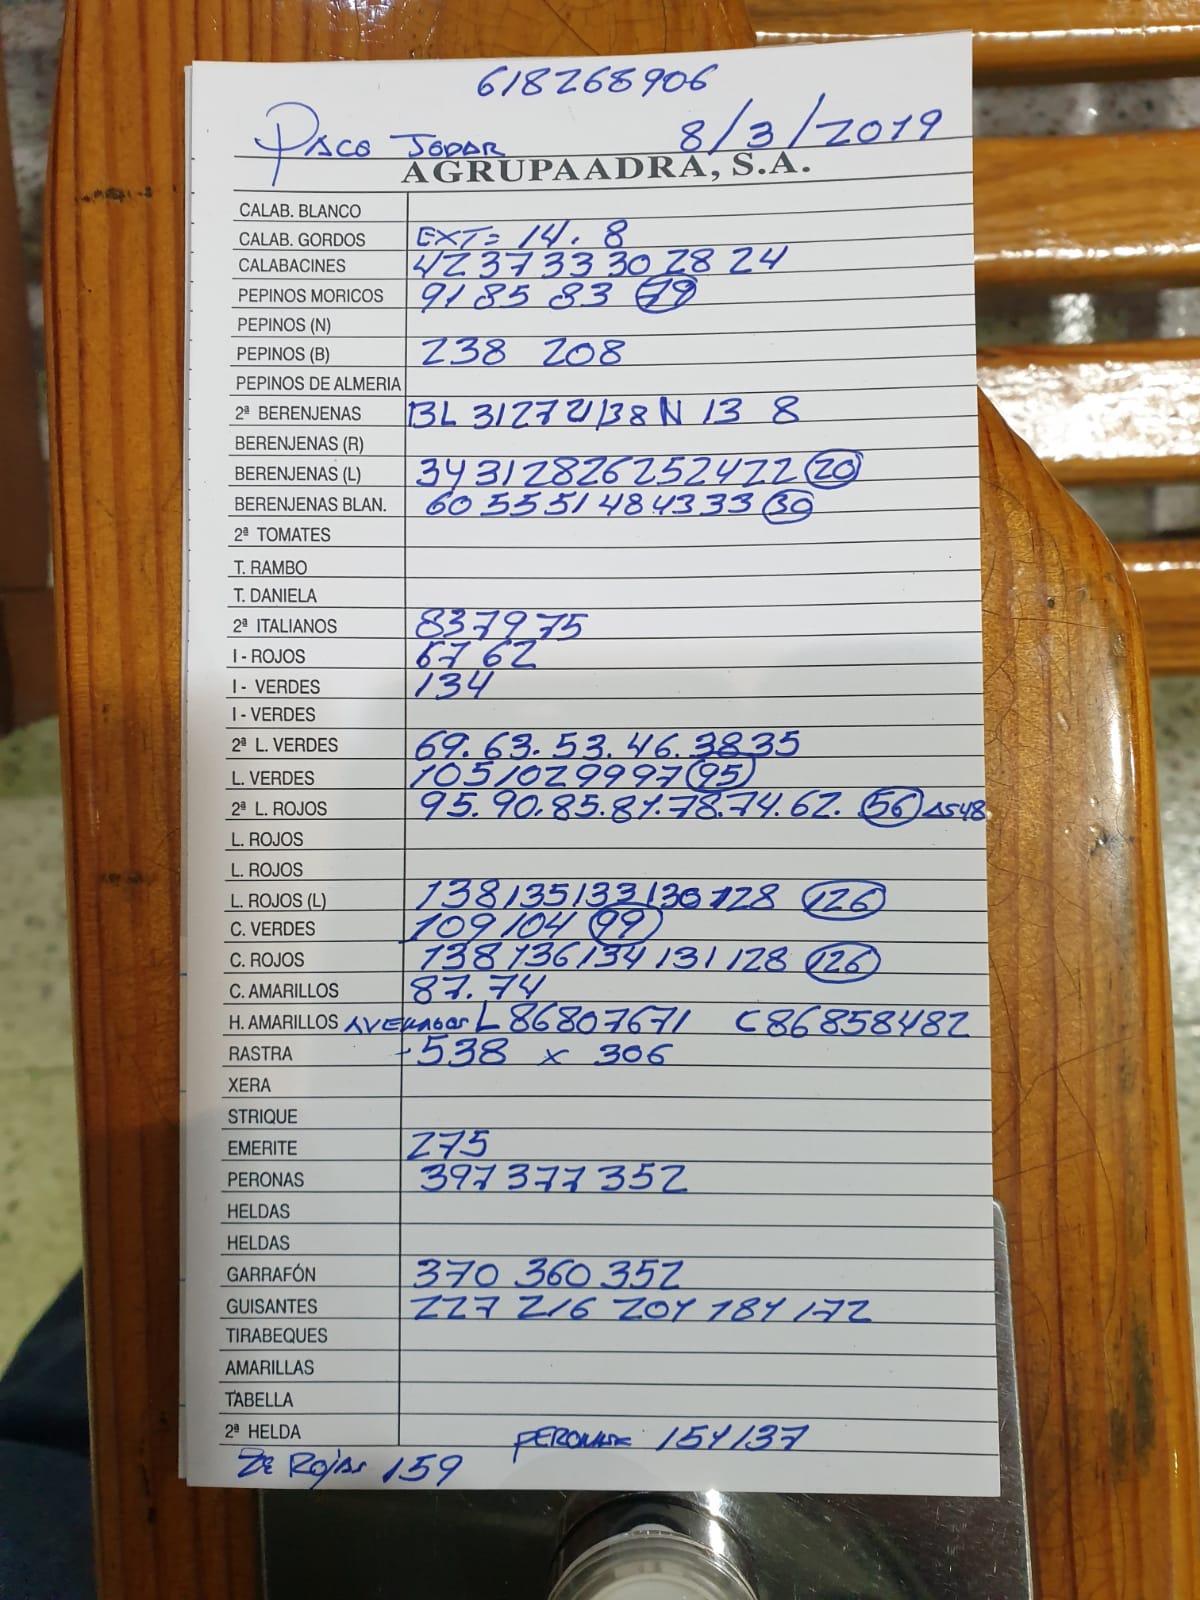 618268906
PACO JODAR 8/3/2019
AGRUPAADRA, S.A.
CALAB. BLANCO
CALAB. GORDOS EXT= 14. 8
CALABACINES 42 37 33 30 28 24
PEPINOS MORICOS 91 85 83 79
PEPINOS (N)
PEPINOS (B) 238 208
PEPINOS DE ALMERIA
2ª BERENJENAS BL 31 27 21 138 N 13 8
BERENJENAS (R)
BERENJENAS (L) 34 31 28 26 25 24 22 20
BERENJENAS BLAN. 60 55 51 48 43 33 30
2ª TOMATES
T. RAMBO
T. DANIELA
2ª ITALIANOS 83 79 75
I - ROJOS 67 62
I - VERDES 134
I - VERDES
2ª L. VERDES 69. 63. 53. 46. 38 35
L. VERDES 105 102 99 97 95
2ª L. ROJOS 95. 90. 85. 81. 78. 74. 62. 56 AS 48
L. ROJOS
L. ROJOS
L. ROJOS (L) 138 135 133 130 128 126
C. VERDES 109 104 99
C. ROJOS 138 136 134 131 128 126
C. AMARILLOS 87. 74
H. AMARILLOS L 86 80 76 71 C 86 85 84 82
RASTRA - 538 x 306
XERA
STRIQUE
EMERITE 275
PERONAS 397 377 352
HELDAS
HELDAS
GARRAFÓN 370 360 352
GUISANTES 227 216 204 184 172
TIRABEQUES
AMARILLAS
TABELLA
2ª HELDA PERONAS 154 137
2ª ROJAS 159